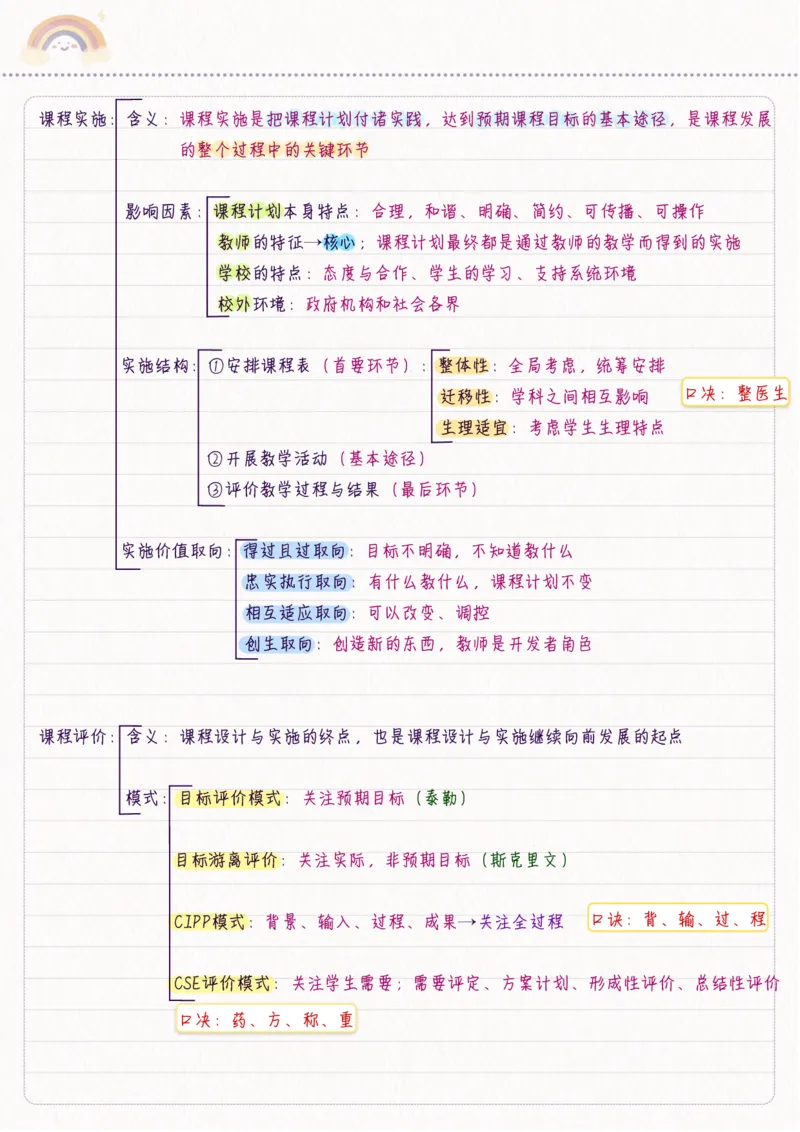 课程实施：含义：课程实施是把课程计划付诸实践，达到预期课程目标的基本途径，是课程发展
的整个过程中的关键环节
影响因素：课程计划本身特点：合理，和谐、明确、简约、可传播、可操作
教师的特征→核心；课程计划最终都是通过教师的教学而得到的实施
学校的特点：态度与合作、学生的学习、支持系统环境
校外环境：政府机构和社会各界
实施结构：①安排课程表（首要环节）：整体性：全局考虑，统筹安排
迁移性：学科之间相互影响 口决：整医生
生理适宜：考虑学生生理特点
②开展教学活动（基本途径）
③评价教学过程与结果（最后环节）
实施价值取向：得过且过取向：目标不明确，不知道教什么
忠实执行取向：有什么教什么，课程计划不变
相互适应取向：可以改变、调控
创生取向：创造新的东西，教师是开发者角色
课程评价：含义：课程设计与实施的终点，也是课程设计与实施继续向前发展的起点
模式：目标评价模式：关注预期目标（泰勒）
目标游离评价：关注实际，非预期目标（斯克里文）
CIPP模式：背景、输入、过程、成果→关注全过程 口诀：背、输、过、程
CSE评价模式：关注学生需要；需要评定、方案计划、形成性评价、总结性评价
口决：药、方、称、重